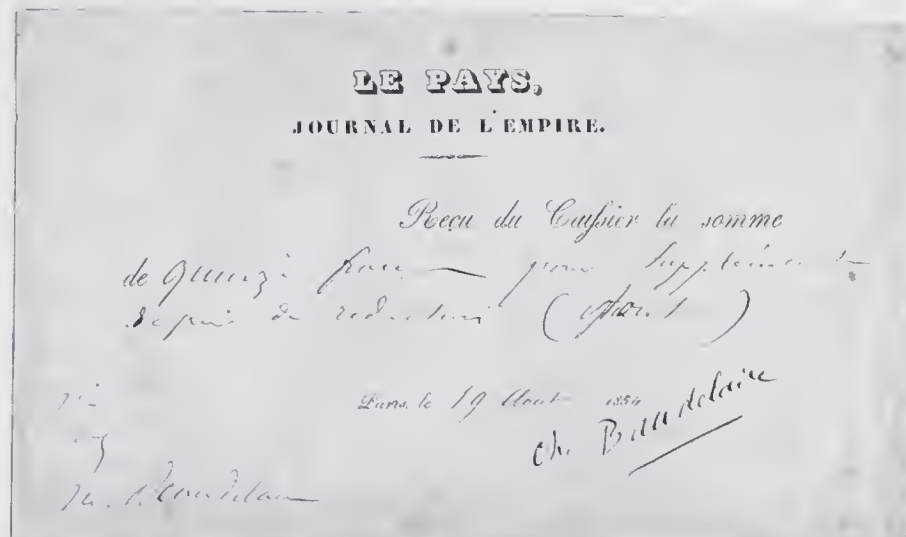 LE PAYS,
JOURNAL DE L'EMPIRE.
Reçu du Caissier la somme
de quinze francs pour supplément
de rédaction (
Paris, le 19 Août 1854
Ch. Baudelaire
M. Baudelaire